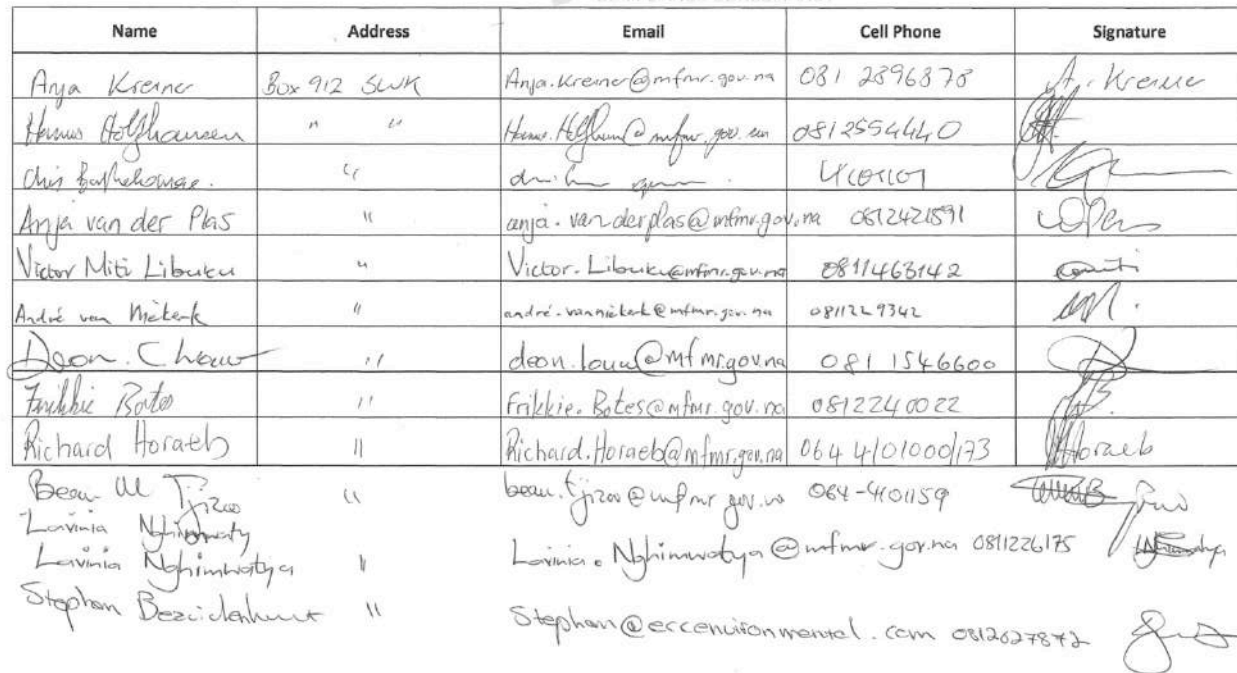 Name Address Email Cell Phone Signature
Anja Kreiner Box 912 SWK Anja.Kreiner@mfmr.gov.na 081 2896878 A. Kreiner
Hannes Holtzhausen " " 0812554440
Chis "
Anja van der Plas " anja.vanderplas@mfmr.gov.na 0812421591
Victor Miti Libuku " Victor.Libuku@mfmr.gov.na 0811463142
André van Niekerk " andré.vanniekerk@mfmr.gov.na 0811229342
Deon. " deon.louw@mfmr.gov.na 081 1546600
Frikkie Botes " Frikkie.Botes@mfmr.gov.na 0812240022
Richard Horaeb " Richard.Horaeb@mfmr.gov.na 064 4101000/173 Horaeb
Beau M Tjizoo " beau.tjizoo@mfmr.gov.na 064-4101159
Lavinia
Lavinia Nghimwatya " Lavinia.Nghimwatya@mfmr.gov.na 0811226175
Stephan Bezuidenhout " Stephan@eccenvironmental.com 0812027872